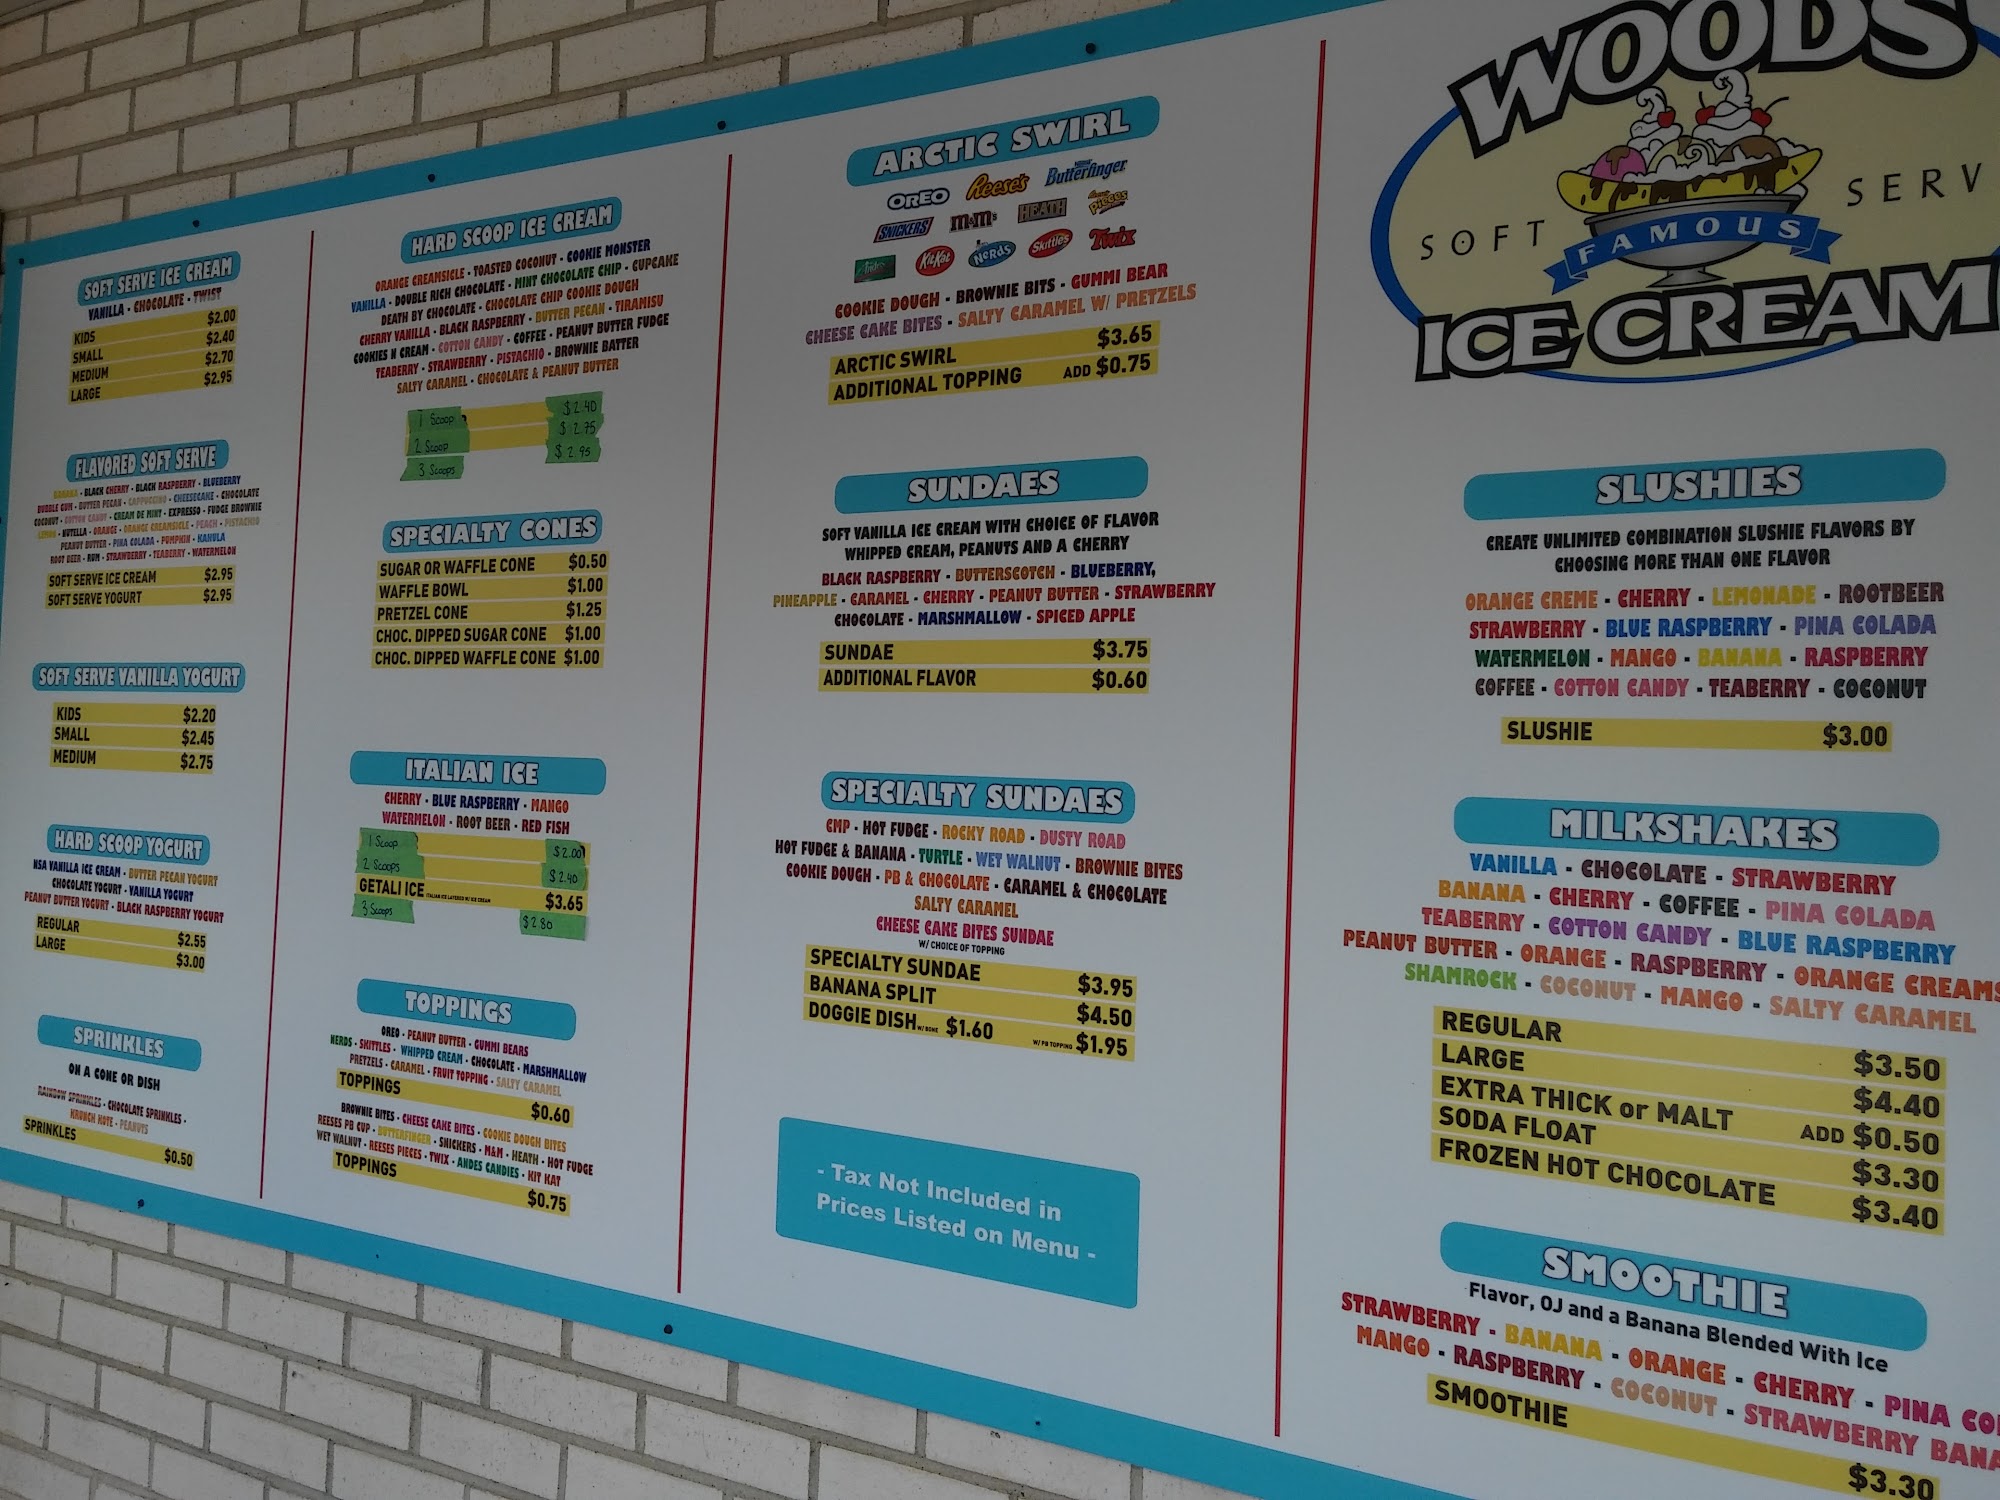 SOFT SERVE ICE CREAM
VANILLA - CHOCOLATE - TWIST
KIDS $2.00
SMALL $2.40
MEDIUM $2.70
LARGE $2.95
FLAVORED SOFT SERVE
BANANA - BLACK CHERRY - BLACK RASPBERRY - BLUEBERRY
BUBBLE GUM - BUTTER PECAN - CAPPUCCINO - CHEESECAKE - CHOCOLATE
COCONUT - COTTON CANDY - CREAM DE MINT - EXPRESSO - FUDGE BROWNIE
LEMON - NUTELLA - ORANGE - ORANGE CREAMSICLE - PEACH - PISTACHIO
PEANUT BUTTER - PINA COLADA - PUMPKIN - KAHULA
ROOT BEER - RUM - STRAWBERRY - TEABERRY - WATERMELON
SOFT SERVE ICE CREAM $2.95
SOFT SERVE YOGURT $2.95
SOFT SERVE VANILLA YOGURT
KIDS $2.20
SMALL $2.45
MEDIUM $2.75
HARD SCOOP YOGURT
NSA VANILLA ICE CREAM - BUTTER PECAN YOGURT
CHOCOLATE YOGURT - VANILLA YOGURT
PEANUT BUTTER YOGURT - BLACK RASPBERRY YOGURT
REGULAR $2.55
LARGE $3.00
SPRINKLES
ON A CONE OR DISH
RAINBOW SPRINKLES - CHOCOLATE SPRINKLES -
KRUNCH KOTE - PEANUTS
SPRINKLES $0.50
HARD SCOOP ICE CREAM
ORANGE CREAMSICLE - TOASTED COCONUT - COOKIE MONSTER
VANILLA - DOUBLE RICH CHOCOLATE - MINT CHOCOLATE CHIP - CUPCAKE
DEATH BY CHOCOLATE - CHOCOLATE CHIP COOKIE DOUGH
CHERRY VANILLA - BLACK RASPBERRY - BUTTER PECAN - TIRAMISU
COOKIES N CREAM - COTTON CANDY - COFFEE - PEANUT BUTTER FUDGE
TEABERRY - STRAWBERRY - PISTACHIO - BROWNIE BATTER
SALTY CARAMEL - CHOCOLATE & PEANUT BUTTER
1 Scoop $2.40
2 Scoop $2.75
3 Scoops $2.95
SPECIALTY CONES
SUGAR OR WAFFLE CONE $0.50
WAFFLE BOWL $1.00
PRETZEL CONE $1.25
CHOC. DIPPED SUGAR CONE $1.00
CHOC. DIPPED WAFFLE CONE $1.00
ITALIAN ICE
CHERRY - BLUE RASPBERRY - MANGO
WATERMELON - ROOT BEER - RED FISH
1 Scoop $2.00
2 Scoops $2.40
GETALI ICE ITALIAN ICE LAYERED W/ ICE CREAM $3.65
3 Scoops $2.80
TOPPINGS
OREO - PEANUT BUTTER - GUMMI BEARS
NERDS - SKITTLES - WHIPPED CREAM - CHOCOLATE - MARSHMALLOW
PRETZELS - CARAMEL - FRUIT TOPPING - SALTY CARAMEL
TOPPINGS $0.60
BROWNIE BITES - CHEESE CAKE BITES - COOKIE DOUGH BITES
REESES PB CUP - BUTTERFINGER - SNICKERS - M&M - HEATH - HOT FUDGE
WET WALNUT - REESES PIECES - TWIX - ANDES CANDIES - KIT KAT
TOPPINGS $0.75
ARCTIC SWIRL
OREO Reese's Butterfinger
SNICKERS m&m's HEATH Pieces
KitKat NeRds Skittles Twix
COOKIE DOUGH - BROWNIE BITS - GUMMI BEAR
CHEESE CAKE BITES - SALTY CARAMEL W/ PRETZELS
ARCTIC SWIRL $3.65
ADDITIONAL TOPPING ADD $0.75
SUNDAES
SOFT VANILLA ICE CREAM WITH CHOICE OF FLAVOR
WHIPPED CREAM, PEANUTS AND A CHERRY
BLACK RASPBERRY - BUTTERSCOTCH - BLUEBERRY,
PINEAPPLE - CARAMEL - CHERRY - PEANUT BUTTER - STRAWBERRY
CHOCOLATE - MARSHMALLOW - SPICED APPLE
SUNDAE $3.75
ADDITIONAL FLAVOR $0.60
SPECIALTY SUNDAES
CMP - HOT FUDGE - ROCKY ROAD - DUSTY ROAD
HOT FUDGE & BANANA - TURTLE - WET WALNUT - BROWNIE BITES
COOKIE DOUGH - PB & CHOCOLATE - CARAMEL & CHOCOLATE
SALTY CARAMEL
CHEESE CAKE BITES SUNDAE
W/ CHOICE OF TOPPING
SPECIALTY SUNDAE $3.95
BANANA SPLIT $4.50
DOGGIE DISH W/ BONE $1.60 W/ PB TOPPING $1.95
- Tax Not Included in
Prices Listed on Menu -
WOODS
SOFT SERV
FAMOUS
ICE CREAM
SLUSHIES
CREATE UNLIMITED COMBINATION SLUSHIE FLAVORS BY
CHOOSING MORE THAN ONE FLAVOR
ORANGE CREME - CHERRY - LEMONADE - ROOTBEER
STRAWBERRY - BLUE RASPBERRY - PINA COLADA
WATERMELON - MANGO - BANANA - RASPBERRY
COFFEE - COTTON CANDY - TEABERRY - COCONUT
SLUSHIE $3.00
MILKSHAKES
VANILLA - CHOCOLATE - STRAWBERRY
BANANA - CHERRY - COFFEE - PINA COLADA
TEABERRY - COTTON CANDY - BLUE RASPBERRY
PEANUT BUTTER - ORANGE - RASPBERRY - ORANGE CREAMS
SHAMROCK - COCONUT - MANGO - SALTY CARAMEL
REGULAR $3.50
LARGE $4.40
EXTRA THICK or MALT ADD $0.50
SODA FLOAT $3.30
FROZEN HOT CHOCOLATE $3.40
SMOOTHIE
Flavor, OJ and a Banana Blended With Ice
STRAWBERRY - BANANA - ORANGE - CHERRY - PINA CO
MANGO - RASPBERRY - COCONUT - STRAWBERRY BANA
SMOOTHIE $3.30